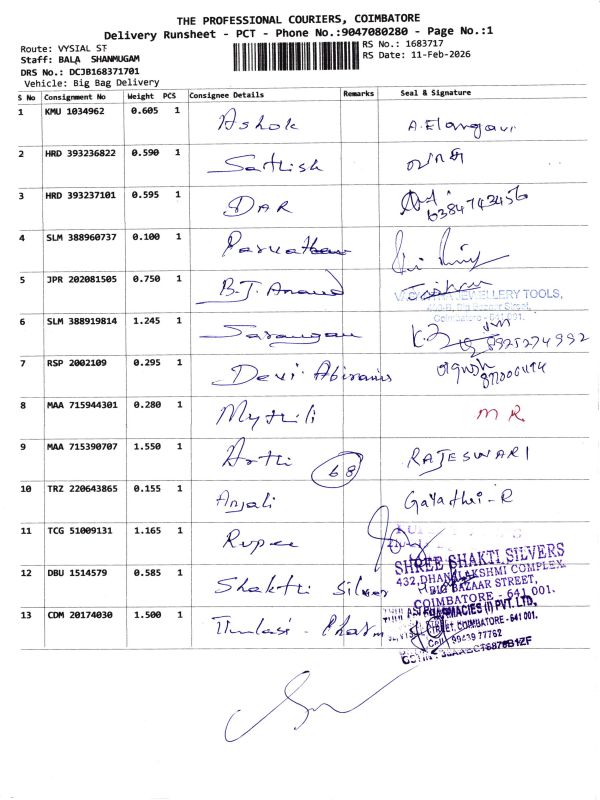 THE PROFESSIONAL COURIERS, COIMBATORE
Delivery Runsheet - PCT - Phone No.:9047080280 - Page No.:1
Route: VYSIAL ST
RS No.: 1683717
Staff: BALA SHANMUGAM
RS Date: 11-Feb-2026
DRS No.: DCJB168371701
Vehicle: Big Bag Delivery
S No Consignment No Weight PCS Consignee Details Remarks Seal & Signature
1 KMU 1034962 0.605 1 Ashok A. Elangavi
2 HRD 393236822 0.590 1 Sathish
3 HRD 393237101 0.595 1 DAR
6384743456
4 SLM 388960737 0.100 1
5 JPR 202081505 0.750 1 B.J. Anand
JEWELLERY TOOLS,
Coimbatore - 641 001.
6 SLM 388919814 1.245 1 Sarangan
8925274992
7 RSP 2002109 0.295 1 Devi Abirami
8 MAA 715944301 0.280 1 Mythili M R
9 MAA 715390707 1.550 1 Arthi 68 RAJESWARI
10 TRZ 220643865 0.155 1 Anjali Gayathri - R
11 TCG 51009131 1.165 1 Rupee
SHREE SHAKTI SILVERS
432, DHANALAKSHMI COMPLEX,
BIG BAZAAR STREET,
COIMBATORE - 641 001.
12 DBU 1514579 0.585 1 Shakthi Silver
13 CDM 20174030 1.500 1 Thulasi - Pharm
PHARMACIES (I) PVT. LTD,
STREET, COIMBATORE - 641 001.
Cell: 99439 77762